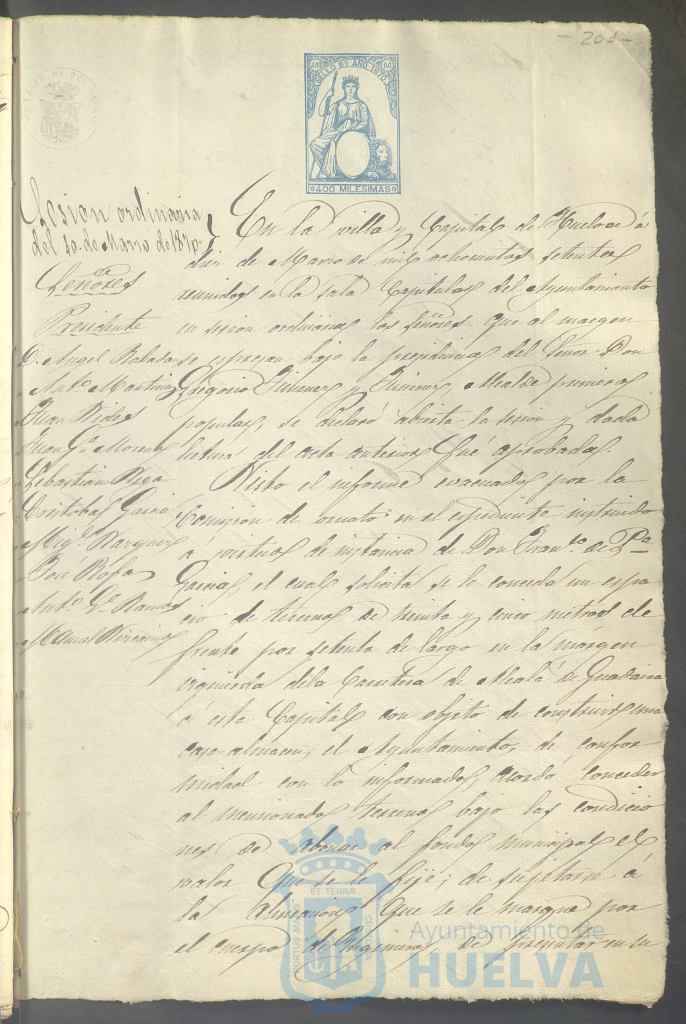 - 201 -
SELLO 8º AÑO 1870
400 MILESIMAS
Sesion ordinaria
del 10 de Marzo de 1870.
Señores
Presidente
D. Angel Rabadan
" Antº Martinez
" Juan
" Juan Gª Moreno
" Sebastian Vega
" Cristobal Garcia
" Migl. Marquez
" José Rofa
" Antº Gª Ramos
" Manuel
En la villa y Capital de Huelva á
diez de Marzo de mil ochocientos setenta
reunidos en la sala Capitular del Ayuntamiento
en sesion ordinaria los Señores que al margen
se espresan bajo la presidencia del Señor Don
Gregorio Jimenez y Jimenez, Alcalde primero
popular, se declaró abierta la sesion y dada
lectura del acta anterior fué aprobada.
Visto el informe evacuado por la
Comision de ornato en el espediente instruido
a virtud de instancia de Don Franco. de Pª
Garcia, el cual solicita se le conceda un espa
cio de terreno de treinta y cinco metros de
frente por setenta de largo en la margen
izquierda de la Carretera de Alcalá de Guadaira
á esta Capital con objeto de construir una
casa-almacen, el Ayuntamiento, de confor
midad con lo informado, acordó conceder
al mencionado terreno bajo las condicio
nes de abonar al fondo municipal el
valor que se le fije; de sujetarse á
la alineacion que se le marque por
el cuerpo de Ingenieros, de presentar en su
PORTUS MARIS
ET TERRÆ
CUSTODIA
Ayuntamiento de
HUELVA